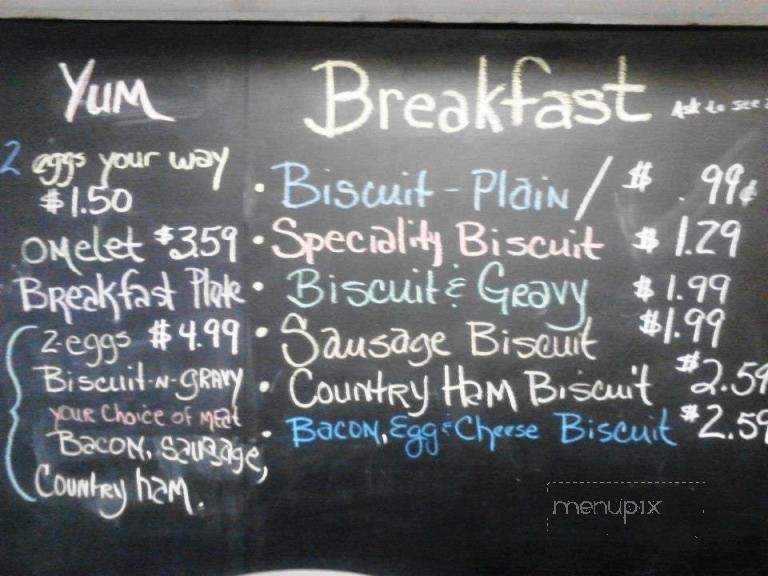 Yum
2 eggs your way
$1.50
Omelet $3.59
Breakfast Plate
2-eggs $4.99
Biscuit-N-Gravy
Your Choice of Meat
Bacon, Sausage,
Country ham.
Breakfast
Ask to see
• Biscuit-Plain / $ .99¢
• Speciality Biscuit $1.29
• Biscuit & Gravy $1.99
• Sausage Biscuit $1.99
• Country Ham Biscuit $2.59
• Bacon, Egg & Cheese Biscuit $2.59
menupix